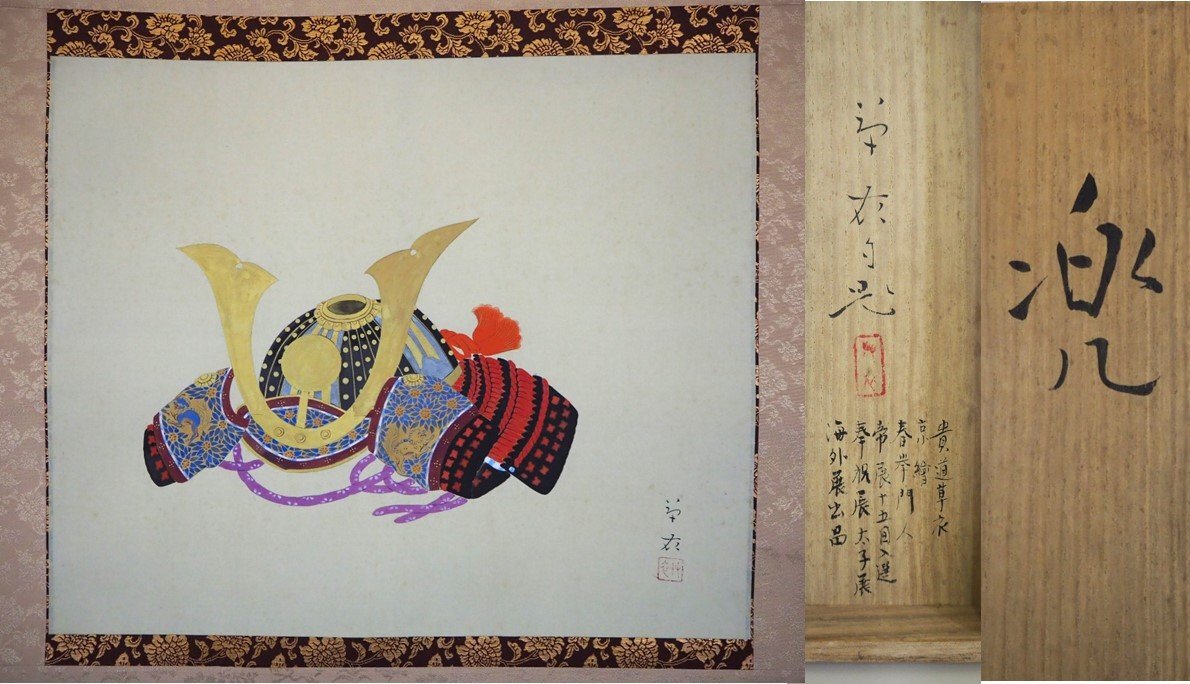 草衣
草衣自題
貴道草衣
京繪
春岑門人
帝展十五回入選
奉祝展太子展
海外展出品
兜